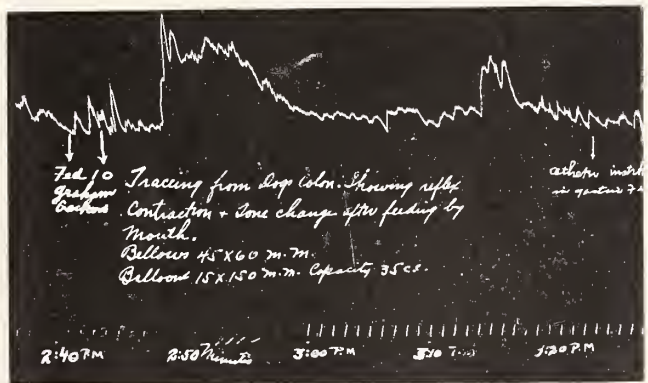 Fed 10
graham
Tracing from Dogs Colon. Showing reflex
Contraction + Tone change after feeding by
Mouth.
Bellows 45X60 m.m.
Balloon 15X150 m.m. Capacity 35cs.
catheter
in
2:40 P.M
2:50 Minutes
3:00 P.M
3:10
3:20 P.M